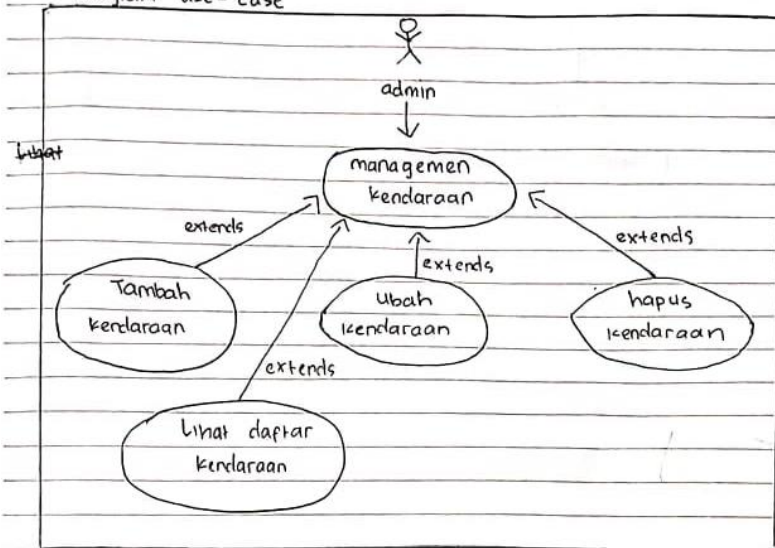 use-case
admin
Lihat
managemen
kendaraan
extends
extends
extends
Tambah
kendaraan
Ubah
kendaraan
hapus
kendaraan
extends
Lihat daftar
kendaraan